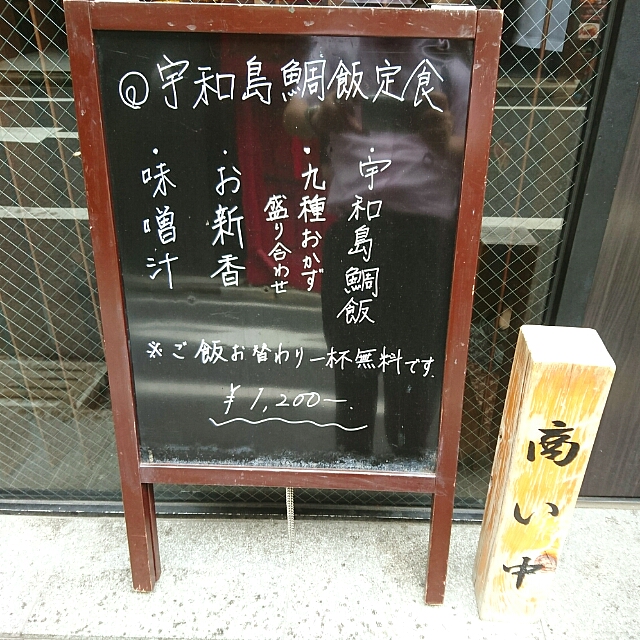 ②宇和島鯛飯定食
・宇和島鯛飯
・九種おかず
盛り合わせ
・お新香
・味噌汁
※ご飯お替わり一杯無料です.
¥1,200ー.
商い中